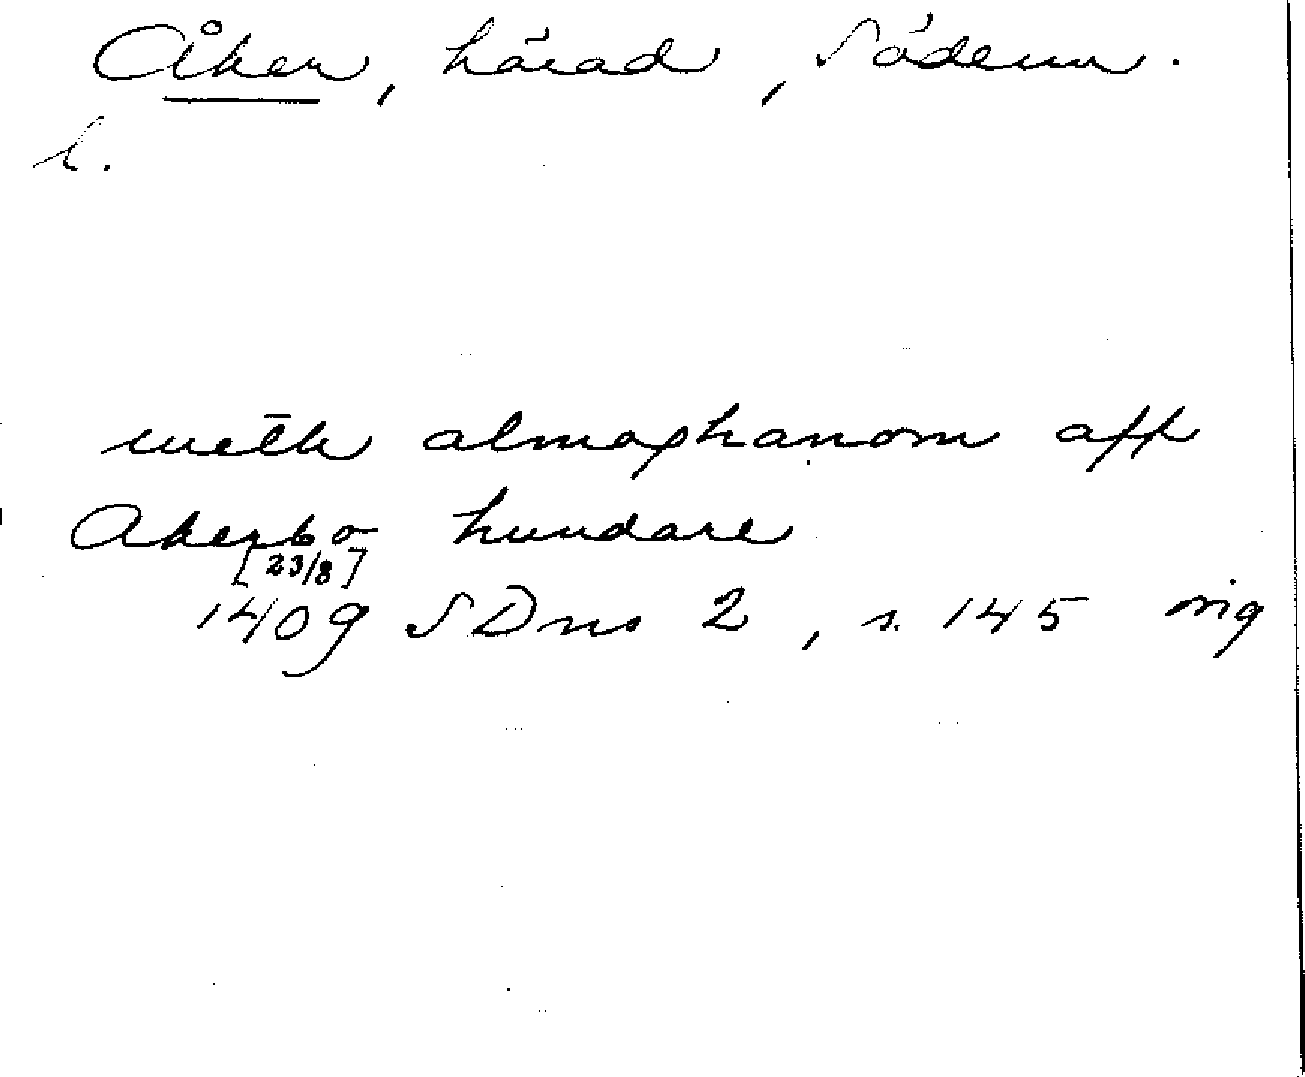 Åker, härad, Söderm.
h.
meth almoghanom aff
Akerbo hundare
[23/8]
1409 SDns 2, s. 145 orig